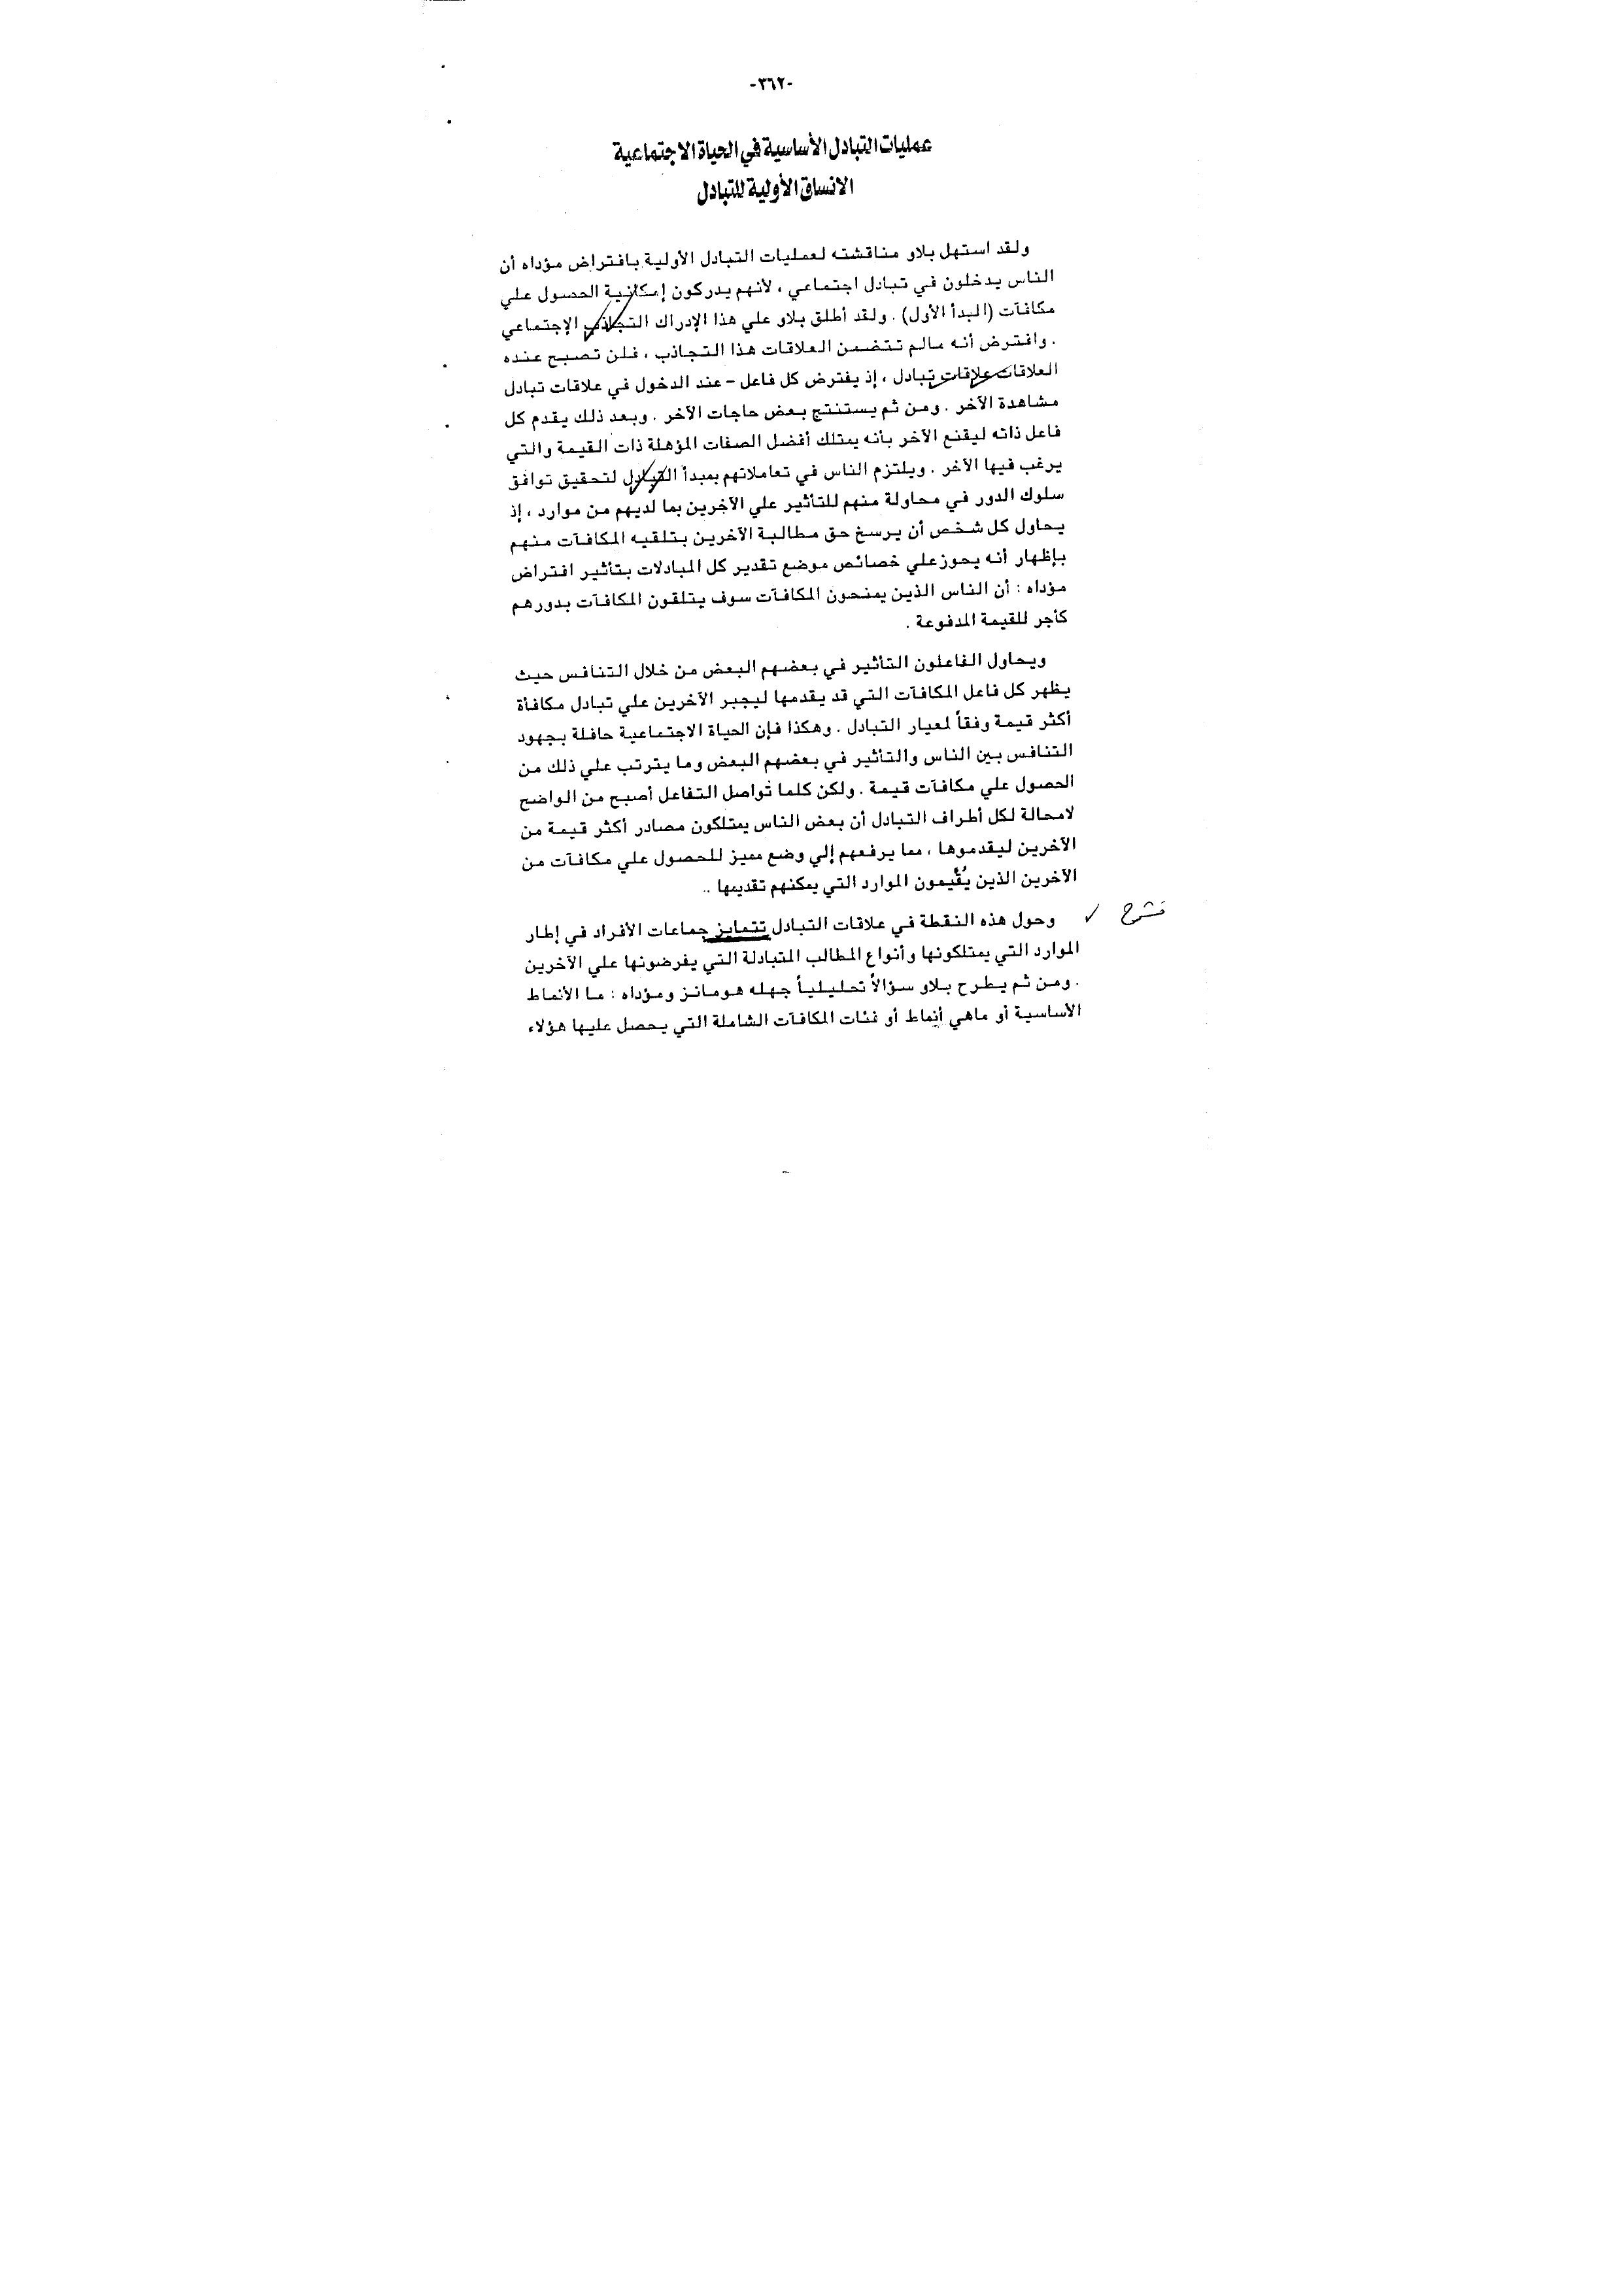 -٣٦٢-
عمليات التبادل الأساسية في الحياة الاجتماعية
الانساق الأولية للتبادل
ولقد استهل بلاو مناقشته لعمليات التبادل الأولية بافتراض مؤداه أن
الناس يدخلون في تبادل اجتماعي ، لأنهم يدركون إمكانية الحصول علي
مكافآت (المبدأ الأول) . ولقد أطلق بلاو علي هذا الإدراك التجاذب الإجتماعي
. وافترض أنه مالم تتضمن العلاقات هذا التجاذب ، فلن تصبح عنده
العلاقات علاقات تبادل ، إذ يفترض كل فاعل - عند الدخول في علاقات تبادل
مشاهدة الآخر . ومن ثم يستنتج بعض حاجات الآخر . وبعد ذلك يقدم كل
فاعل ذاته ليقنع الآخر بأنه يمتلك أفضل الصفات المؤهلة ذات القيمة والتي
يرغب فيها الآخر . ويلتزم الناس في تعاملاتهم بمبدأ التبادل لتحقيق توافق
سلوك الدور في محاولة منهم للتأثير علي الآخرين بما لديهم من موارد ، إذ
يحاول كل شخص أن يرسخ حق مطالبة الآخرين بتلقيه المكافآت منهم
بإظهار أنه يحوز علي خصائص موضع تقدير كل المبادلات بتأثير افتراض
مؤداه : أن الناس الذين يمنحون المكافآت سوف يتلقون المكافآت بدورهم
كأجر للقيمة المدفوعة .
ويحاول الفاعلون التأثير في بعضهم البعض من خلال التنافس حيث
يظهر كل فاعل المكافآت التي قد يقدمها ليجبر الآخرين علي تبادل مكافأة
أكثر قيمة وفقاً لمعيار التبادل . وهكذا فإن الحياة الاجتماعية حافلة بجهود
التنافس بين الناس والتأثير في بعضهم البعض وما يترتب علي ذلك من
الحصول علي مكافآت قيمة . ولكن كلما تواصل التفاعل أصبح من الواضح
لامحالة لكل أطراف التبادل أن بعض الناس يمتلكون مصادر أكثر قيمة من
الآخرين ليقدموها ، مما يرفعهم إلي وضع مميز للحصول علي مكافآت من
الآخرين الذين يُقَيمون الموارد التي يمكنهم تقديمها ..
وحول هذه النقطة في علاقات التبادل تتمايز جماعات الأفراد في إطار
الموارد التي يمتلكونها وأنواع المطالب المتبادلة التي يفرضونها علي الآخرين
. ومن ثم يطرح بلاو سؤالاً تحليلياً جهله هومانز ومؤداه : ما الأنماط
الأساسية أو ماهي أنماط أو فئات المكافآت الشاملة التي يحصل عليها هؤلاء